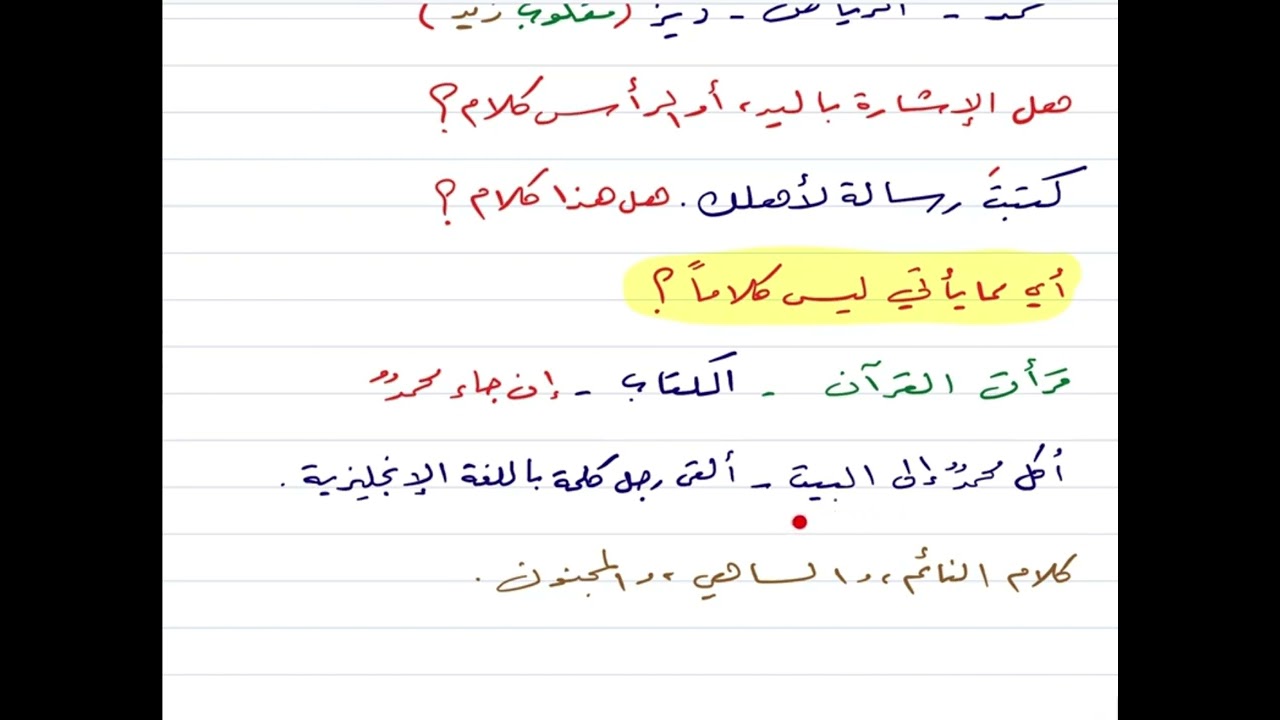 - الرياض - ديز (مقلوب زيد)
هل الإشارة باليد، أو الرأس كلام؟
كتبتَ رسالة لأهلك. هل هذا كلام؟
أي مما يأتي ليس كلاماً؟
قرأت القرآن - الكتاب - إن جاء محمدٌ
أكل محمدٌ إلى البيت - ألقى رجل كلمة باللغة الإنجليزية.
كلام النائم، والساهي، والمجنون.